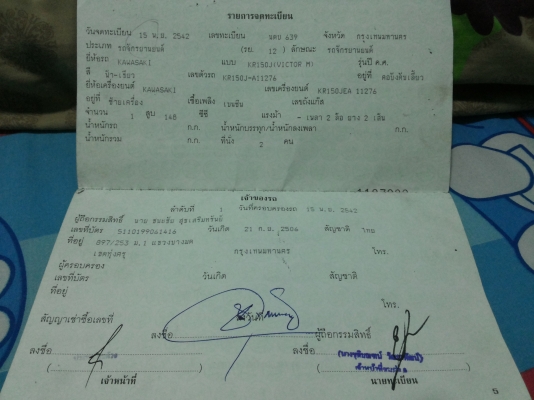 รายการจดทะเบียน
วันจดทะเบียน 15 พ.ย. 2542 เลขทะเบียน 639 จังหวัด กรุงเทพมหานคร
ประเภท รถจักรยานยนต์ (รย. 12 ) ลักษณะ รถจักรยานยนต์
ยี่ห้อรถ KAWASAKI แบบ KR150J(VICTOR M) รุ่นปี ค.ศ.
สี เลขตัวรถ KR150J-A11276 อยู่ที่
ยี่ห้อเครื่องยนต์ KAWASAKI เลขเครื่องยนต์ KR150JEA 11276
อยู่ที่ ซ้ายเครื่อง เชื้อเพลิง เบนซิน เลขถังแก๊ส
จำนวน 1 สูบ 148 ซีซี แรงม้า - เพลา 2 ล้อ ยาง 2 เส้น
น้ำหนักรถ ก.ก. น้ำหนักบรรทุก/น้ำหนักลงเพลา ก.ก.
น้ำหนักรวม ก.ก. ที่นั่ง 2 คน
เจ้าของรถ
ลำดับที่ 1 วันที่ครอบครองรถ 15 พ.ย. 2542
ผู้ถือกรรมสิทธิ์ นาย
เลขที่บัตร 5110199061416 วันเกิด 21 ก.ย. 2506 สัญชาติ ไทย
ที่อยู่ 897/253 ม.1 แขวงบางมด
เขตทุ่งครุ กรุงเทพมหานคร โทร.
ผู้ครอบครอง
เลขที่บัตร วันเกิด สัญชาติ
ที่อยู่
โทร.
สัญญาเช่าซื้อเลขที่
ลงชื่อ ผู้ถือกรรมสิทธิ์
ลงชื่อ ลงชื่อ
เจ้าหน้าที่ นายทะเบียน
9